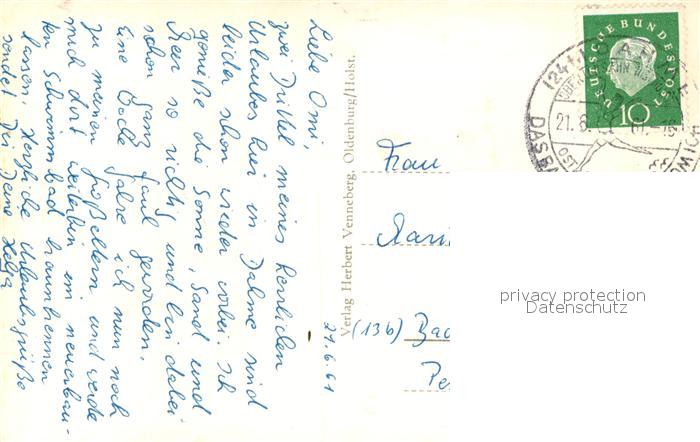 Liebe Omi,
zwei Drittel meines herrlichen
Urlaubes hier in Dahme sind
leider schon wieder vorbei. Ich
genieße die Sonne, Sand und
Meer so richtig und bin dabei
schon ganz faul geworden.
Eine Woche fahre ich nun noch
zu meinen Großeltern und werde
mich dort weiterhin im neuerbau-
ten Schwimmbad braunbrennen
lassen. Herzliche Urlaubsgrüße
sendet Dir Deine Helga
21.6.61
Verlag Herbert Venneberg, Oldenburg/Holst.
DEUTSCHE BUNDESPOST
10
(24b) DAHME
21.6.
DAS
OST
Frau
(13b) Bad
privacy protection
Datenschutz